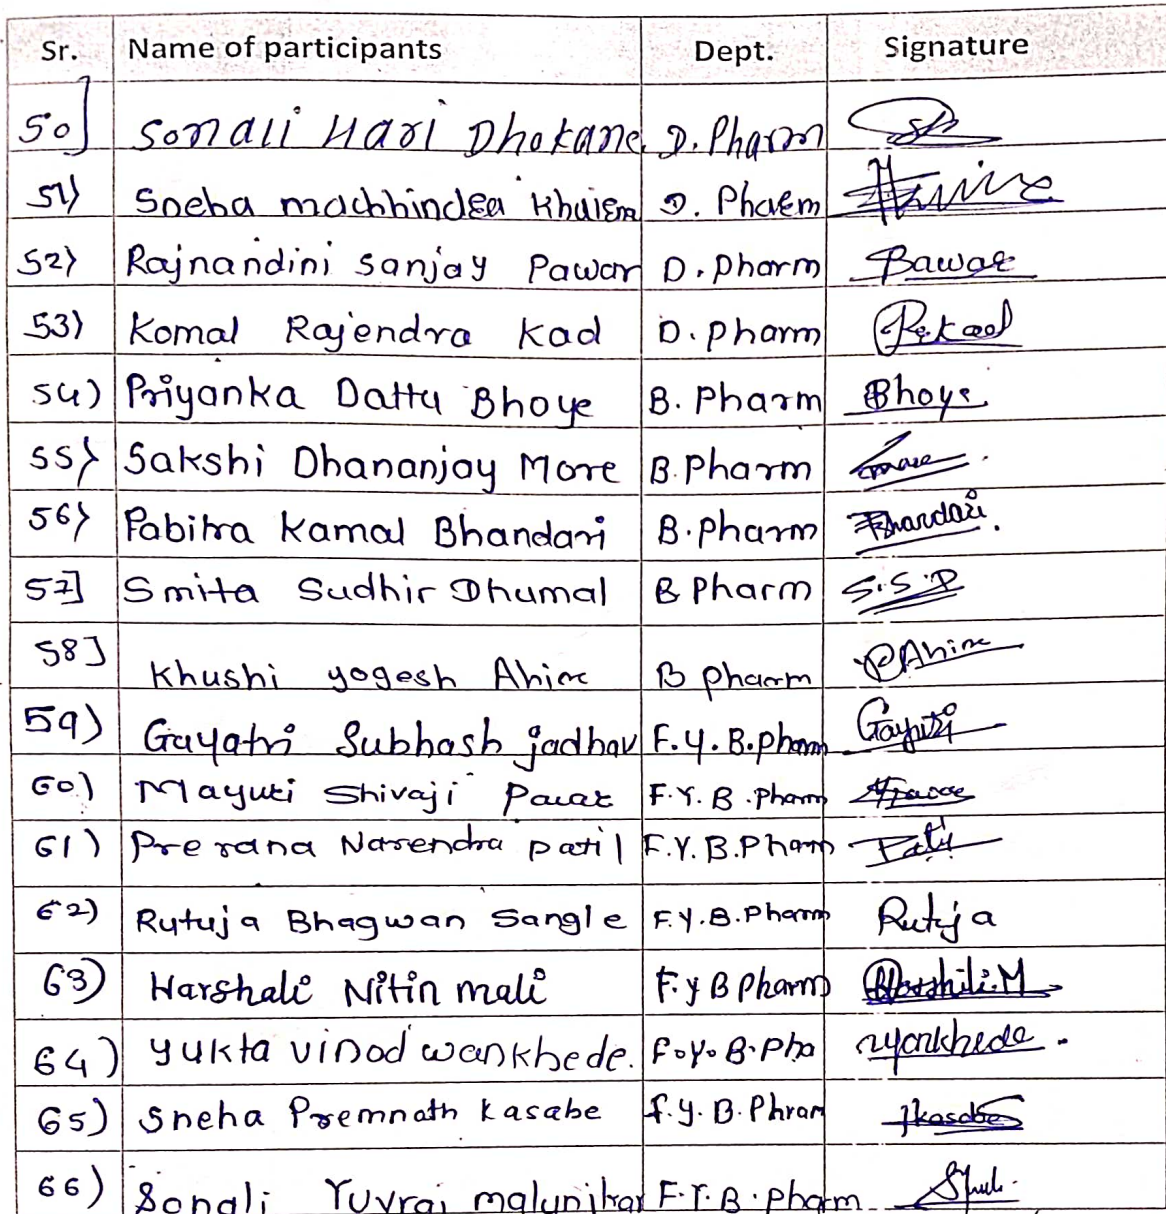 Sr. Name of participants Dept. Signature
50] Sonali Hari Dhokane D. Pharm
51) Sneha machhindra D. Pharm
52) Rajnandini Sanjay Pawar D. Pharm Pawar
53) Komal Rajendra Kad D. Pharm
54) Priyanka Dattu Bhoye B. Pharm Bhoye
55) Sakshi Dhananjay More B. Pharm more
56) Pabitra Kamal Bhandari B. Pharm Bhandari.
57] Smita Sudhir Dhumal B Pharm S.S.D
58] Khushi yogesh Ahire B pharm Ahire
59) Gayatri Subhash jadhav F.Y. B.pharm Gayatri
60) Mayuri Shivaji Pawar F.Y. B. Pharm
61) Prerana Narendra patil F.Y. B. Pharm Patil
62) Rutuja Bhagwan Sangle F.Y. B. Pharm Rutuja
63) Harshali Nitin mali F.y B Pharm Harshali.M
64) yukta vinod wankhede. F.Y. B. Pha
65) Sneha Premnath kasabe f.y. B. Phram
66) Sonali Yuvraj F.Y. B. pharm